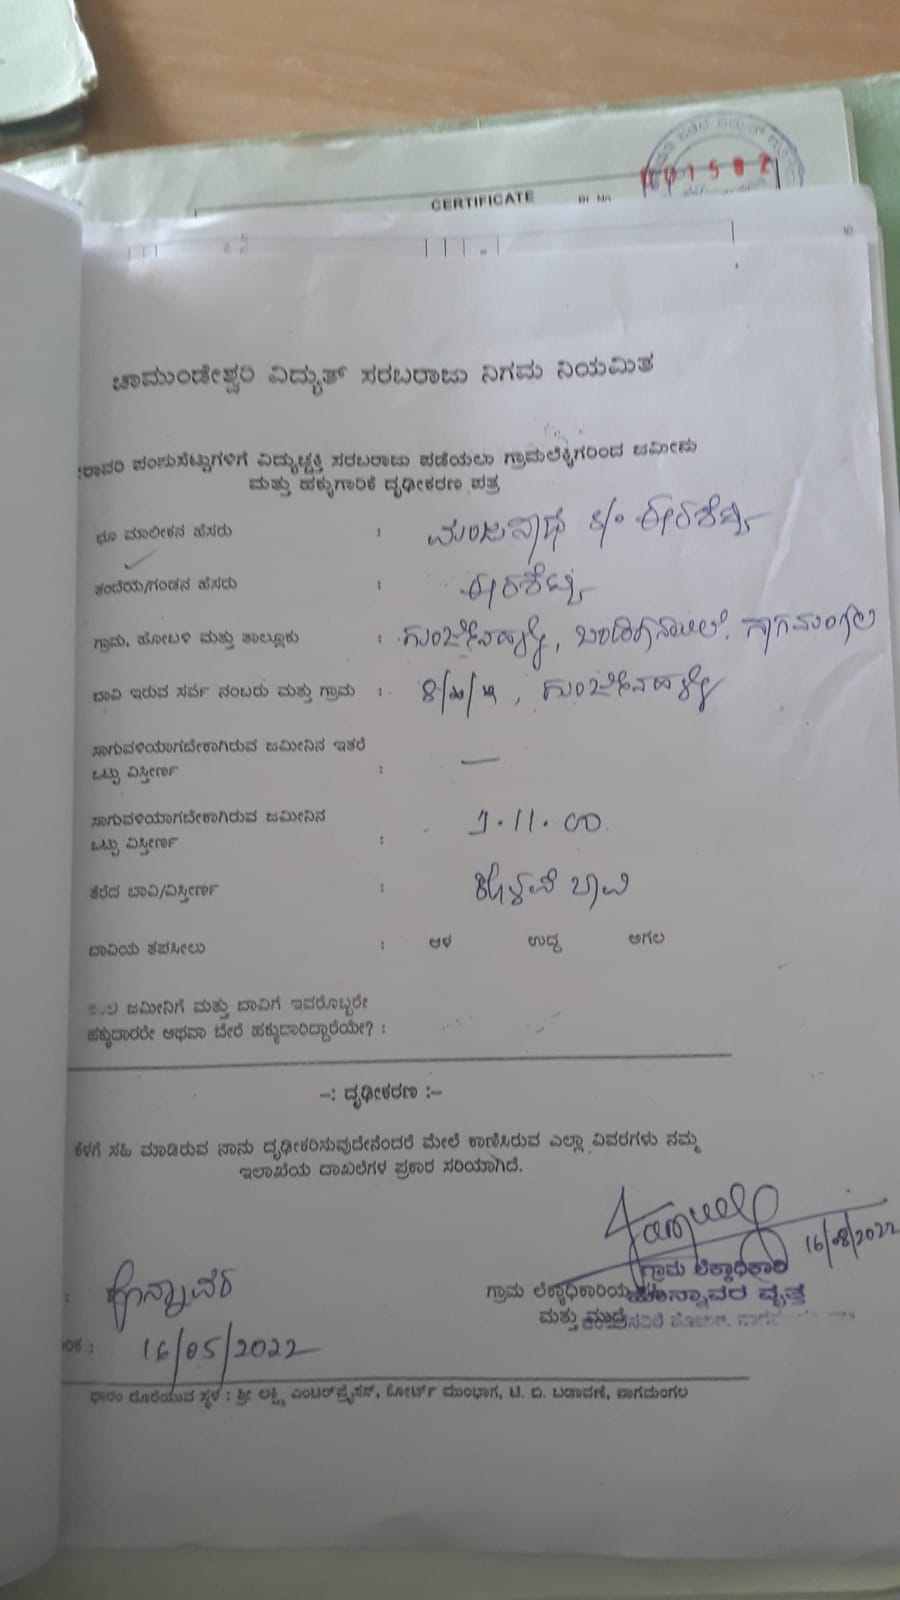 CERTIFICATE
ಚಾಮುಂಡೇಶ್ವರಿ ವಿದ್ಯುತ್ ಸರಬರಾಜು ನಿಗಮ ನಿಯಮಿತ
ಪಂಪುಸೆಟ್ಟುಗಳಿಗೆ ವಿದ್ಯುಚ್ಛಕ್ತಿ ಸರಬರಾಜು ಪಡೆಯಲು ಗ್ರಾಮಲೆಕ್ಕಿಗರಿಂದ ಜಮೀನು
ಮತ್ತು ಹಕ್ಕುಗಾರಿಕೆ ದೃಢೀಕರಣ ಪತ್ರ
ಭೂ ಮಾಲೀಕನ ಹೆಸರು : ಮಂಜುನಾಥ S/O ಈರಶೆಟ್ಟಿ
ತಂದೆಯ/ಗಂಡನ ಹೆಸರು : ಈರಶೆಟ್ಟಿ
ಗ್ರಾಮ, ಹೋಬಳಿ ಮತ್ತು ತಾಲ್ಲೂಕು : ನಾಗಮಂಗಲ
ಬಾವಿ ಇರುವ ಸರ್ವೆ ನಂಬರು ಮತ್ತು ಗ್ರಾಮ :
ಸಾಗುವಳಿಯಾಗಬೇಕಾಗಿರುವ ಜಮೀನಿನ ಇತರೆ
ಒಟ್ಟು ವಿಸ್ತೀರ್ಣ : —
ಸಾಗುವಳಿಯಾಗಬೇಕಾಗಿರುವ ಜಮೀನಿನ
ಒಟ್ಟು ವಿಸ್ತೀರ್ಣ : 1.11.00
ತೆರೆದ ಬಾವಿ/ವಿಸ್ತೀರ್ಣ : ಕೊಳವೆ ಬಾವಿ
ಬಾವಿಯ ತಪಸೀಲು : ಆಳ ಉದ್ದ ಅಗಲ
ಜಮೀನಿಗೆ ಮತ್ತು ಬಾವಿಗೆ ಇವರೊಬ್ಬರೇ
ಹಕ್ಕುದಾರರೇ ಅಥವಾ ಬೇರೆ ಹಕ್ಕುದಾರಿದ್ದಾರೆಯೇ? :
–: ದೃಢೀಕರಣ :–
ಕೆಳಗೆ ಸಹಿ ಮಾಡಿರುವ ನಾನು ದೃಢೀಕರಿಸುವುದೇನೆಂದರೆ ಮೇಲೆ ಕಾಣಿಸಿರುವ ಎಲ್ಲಾ ವಿವರಗಳು ನಮ್ಮ
ಇಲಾಖೆಯ ದಾಖಲೆಗಳ ಪ್ರಕಾರ ಸರಿಯಾಗಿದೆ.
16/08/2022
ಗ್ರಾಮ ಲೆಕ್ಕಾಧಿಕಾರಿ
: ಹೊನ್ನಾವರ
ಗ್ರಾಮ ಲೆಕ್ಕಾಧಿಕಾರಿಯ
ಹೊನ್ನಾವರ ವೃತ್ತ
ಮತ್ತು ಮುದ್ರೆ
: 16/05/2022
ಫಾರಂ ದೊರೆಯುವ ಸ್ಥಳ : ಶ್ರೀ ಲಕ್ಷ್ಮಿ ಎಂಟರ್‌ಪ್ರೈಸಸ್, ಕೋರ್ಟ್ ಮುಂಭಾಗ, ಟಿ. ಬಿ. ಬಡಾವಣೆ, ನಾಗಮಂಗಲ